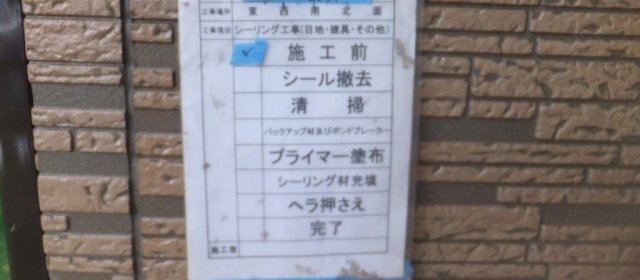 工事場所 東西南北面
工事項目 シーリング工事(目地・建具・その他)
✓ 施工前
シール撤去
清掃
バックアップ材及びボンドブレーカー
プライマー塗布
シーリング材充填
ヘラ押さえ
完了
施工者